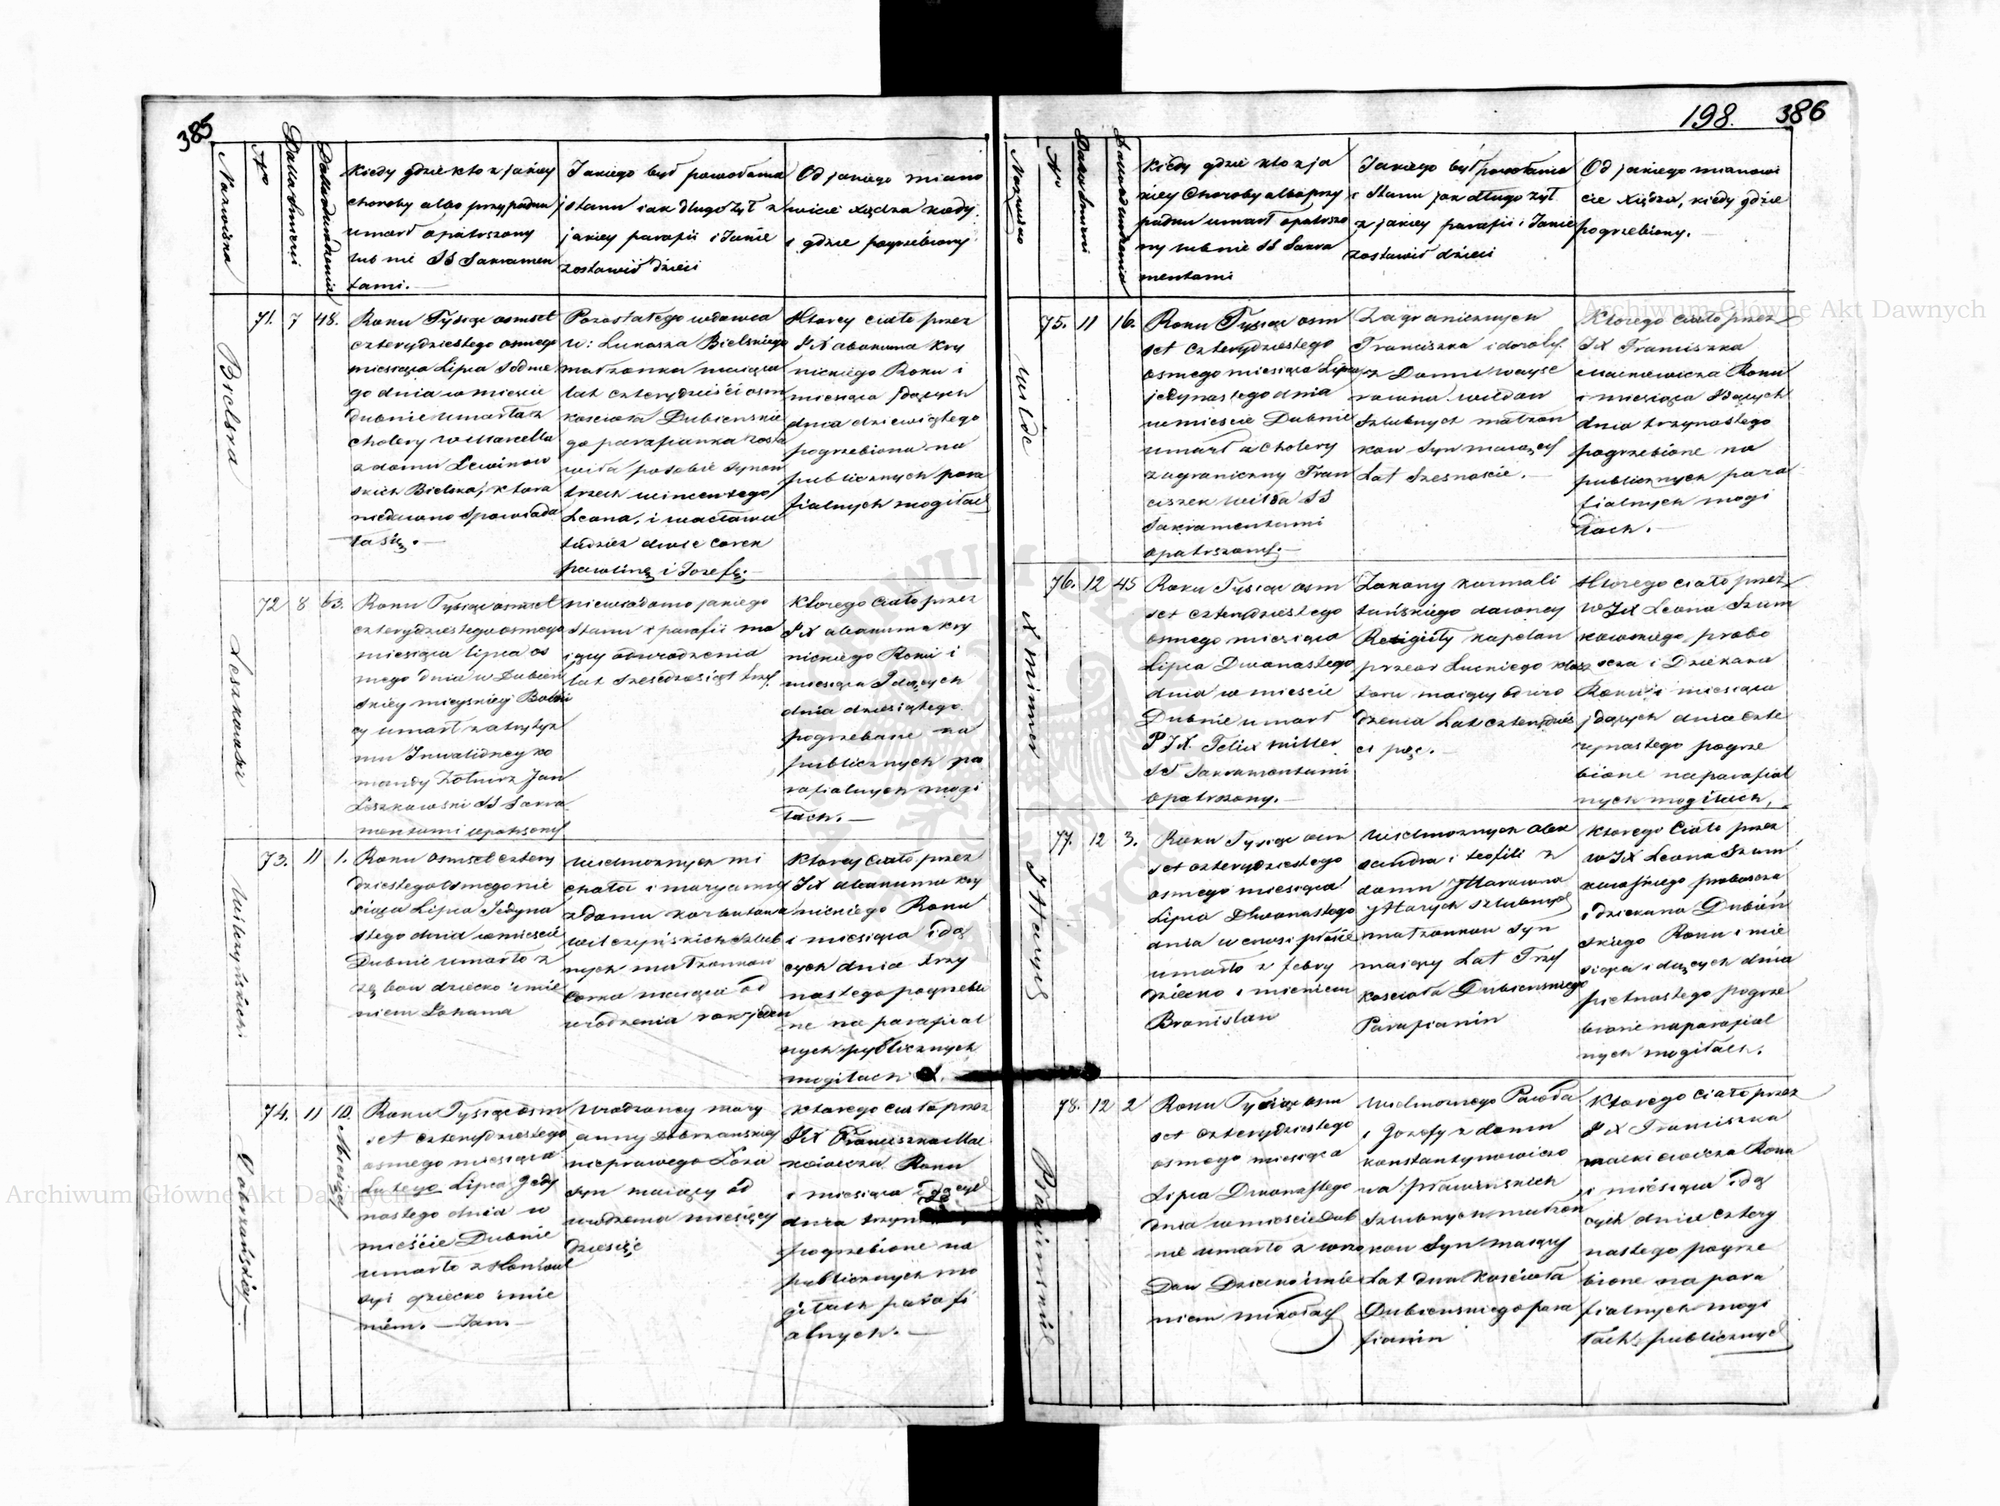 385
Nazwiska
No
Data śmierci
Data urodzenia
Kiedy gdzie kto z jakiey
choroby albo przypadku
umarł opatrzony
lub nie SS Sakramen
tami.
Jakiego był powołania
stanu jak długo żył z
jakiey parafii i Jakie
zostawił dzieci
Od jakiego miano
wicie Xiędza kiedy
i gdzie pogrzebiony
71.
7
48.
Bielska
Roku Tysiąc osmset
czterydziestego osmego
miesiąca Lipca Siódme
go dnia w mieście
Dubnie umarła z
cholery W Marcella
z domu
Bielska, ktora
niedawno Spowiada
ła się.
Pozostałego wdowca
W: Łukasza Bielskiego
małżonka maiąca
lat czterydzieści osm
kościoła Dubienskie
go parafianka zosta
wiła po sobie synow
trzech Wincentego
Leona, i Wacława
tudzież dwie Corek
Pawlinę i Jozefę.
Ktorey ciało przez
JX Abakuma Kry
nickiego Roku i
miesiąca Idących
dnia dziewiątego
pogrzebiono na
publicznych para
fialnych mogiłac
72
8
63.
Leszkowski
Roku Tysiąc osmset
czterydziestego osmego
miesiąca lipca os
mego dnia w Dubien
skiey mieyskiey Bolni
cy umarł
Inwalidney ko
mandy Żołnierz Jan
Leszkowski SS Sakra
mentami opatrzony
niewiadomo jakiego
Stanu i parafii ma
iący od urodzenia
lat sześćdziesiąt trzy.
Ktorego ciało przez
JX Abakuma Kry
nickiego Roku i
miesiąca Idących
dnia dziesiątego
pogrzebane na
publicznych pa
rafialnych mogi
łach.
73.
11
1.
Wilczyńskich
Roku osmset cztery
dziestego osmego mie
siąca Lipca Jedyna
stego dnia w mieście
Dubnie umarło z
zębow dziecko imie
niem
Wielmożnych Mi
chała i Maryanny
z domu
Wilczyńskich szlub
nych małżonkow
Corka maiąca od
urodzenia rok jeden
Ktorey Ciało przez
JX Abakuma Kry
nickiego Roku
i miesiąca idą
cych dnia trzy
nastego pogrzebio
ne na parafial
nych publicznych
mogiłach
74.
11
10.
Miesięcy
Dobrzańskiej
Roku Tysiąc osm
set czterydziestego
osmego miesiąca
Lutego Lipca Jedy
nastego dnia w
mieście Dubnie
umarło z konwul
syi dziecko imie
niem. Jan
Urodzoney Mary
anny Dobrzańskiey
nieprawego Łoża
syn maiący od
urodzenia miesięcy
dziesięć
Ktorego ciało przez
JX Franciszka Mac
kiewicza Roku
i miesiąca idących
dnia
pogrzebione na
publicznych mo
giłach parafi
alnych.
198. 386
Nazwisko
No
Data śmierci
Data urodzenia
Kiedy gdzie kto z ja
kiey Choroby albo przy
padku umarł opatrzo
ny lub nie SS Sakra
mentami
Jakiego był powołania
i Stanu jak długo żył
z jakiey parafii i Jakie
zostawił dzieci
Od jakiego mianowi
cie Xiędza, kiedy gdzie
pogrzebiony.
75.
11
16.
Wilde
Roku Tysiąc osm
set czterydziestego
osmego miesiąca Lipca
jedynastego dnia
w mieście Dubnie
umarł z Cholery
zagraniczny Fran
ciszek Wilda SS
Sakramentami
opatrzony.
Zagranicznych
Franciszka i Doroty
z Domu
szlubnych małżon
kow syn maiący
Lat szesnaście.
Ktorego ciało przez
JX Franciszka
Mackiewicza Roku
i miesiąca Idących
dnia trzynastego
pogrzebione na
publicznych para
fialnych mogi
łach.
76.
12
45
Roku Tysiąc osm
set czterydziestego
osmego miesiąca
Lipca Dwonastego
dnia w mieście
Dubnie umarł
P JX. Felix
SS Sakramentami
opatrzony.
Zakony karmeli
tańskiego dawney
Reguły kapelan
przeor Łuckiego klasz
toru maiący od uro
dzenia Lat czterydzieś
ci pięc.
Ktorego ciało przez
W JX Leona Szum
kowskiego probo
scza i Dziekana
Roku i miesiąca
jdących dnia czte
rynastego pogrze
bione na parafial
nych mogiłach.
77.
12
3.
Roku Tysiąc osm
set czterydziestego
osmego miesiąca
Lipca Dwonastego
dnia
umarło z febry
dziecko imieniem
Bronisław
Wielmożnych Alex
sandra i Teofili z
domu
szlubnych
małżonkow syn
maiący Lat Trzy
kościoła Dubienskiego
Parafianin
Ktorego Ciało przez
W JX Leona Szum
kowskiego proboscza
i dziekana Dubień
skiego Roku i mie
siąca idących dnia
pietnastego pogrze
bione na parafial
nych mogiłach.
78.
12
2
Roku Tysiąc osm
set czterydziestego
osmego miesiąca
Lipca Dwonastego
dnia w mieście Dub
nie umarło z wrzo
dow Dziecko imie
niem Mikołay
Wielmożnego Pawła
i Jozefy z domu
Konstantynowiczo
wa
szlubnych małżon
kow syn maiący
Lat dwa Kościoła
Dubienskiego para
fianin
Ktorego Ciało przez
JX Franciszka
Mackiewicza Roku
i miesiąca idą
cych dnia cztery
nastego pogrze
bione na para
fialnych mogi
łach publicznych
Archiwum Główne Akt Dawnych
Archiwum Główne Akt Dawnych